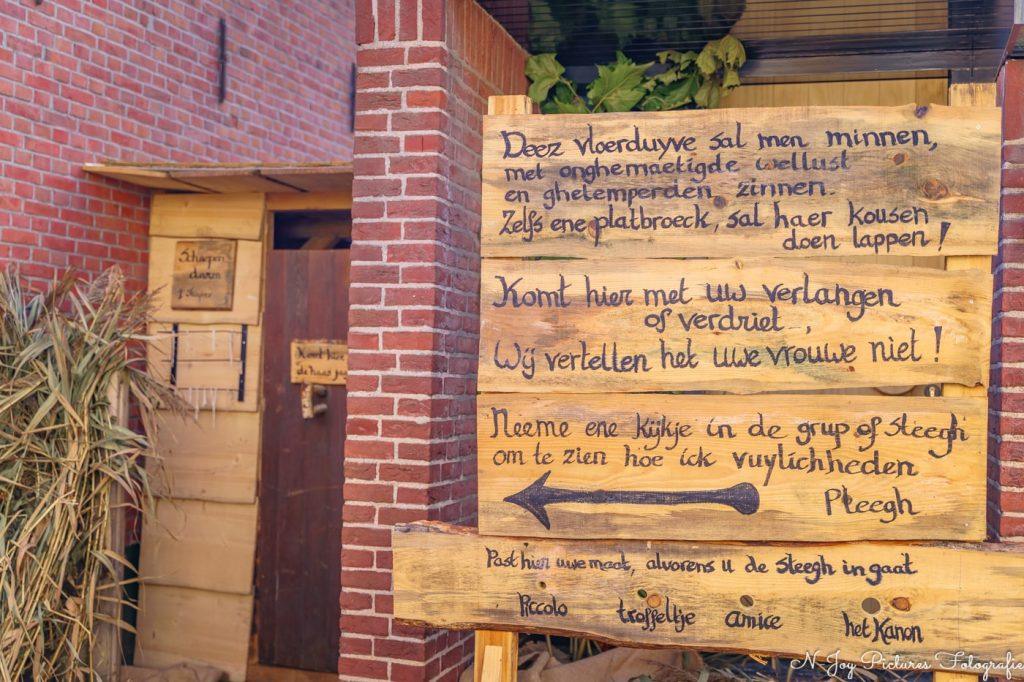 Deez vloerduyve sal men minnen,
met onghemaetigde wellust
en ghetemperden zinnen.
Zelfs ene platbroeck, sal haer kousen
doen lappen!
Komt hier met uw verlangen
of verdriet...,
Wij vertellen het uwe vrouwe niet!
Neeme ene kijkje in de grup of steegh
om te zien hoe ick vuylichheden
Pleegh
Past hier uwe maat, alvorens u de steegh in gaat
Piccolo troffeltje amice het Kanon
Schaepen
darem
Komt hier
de haas
N-Joy Pictures Fotografie